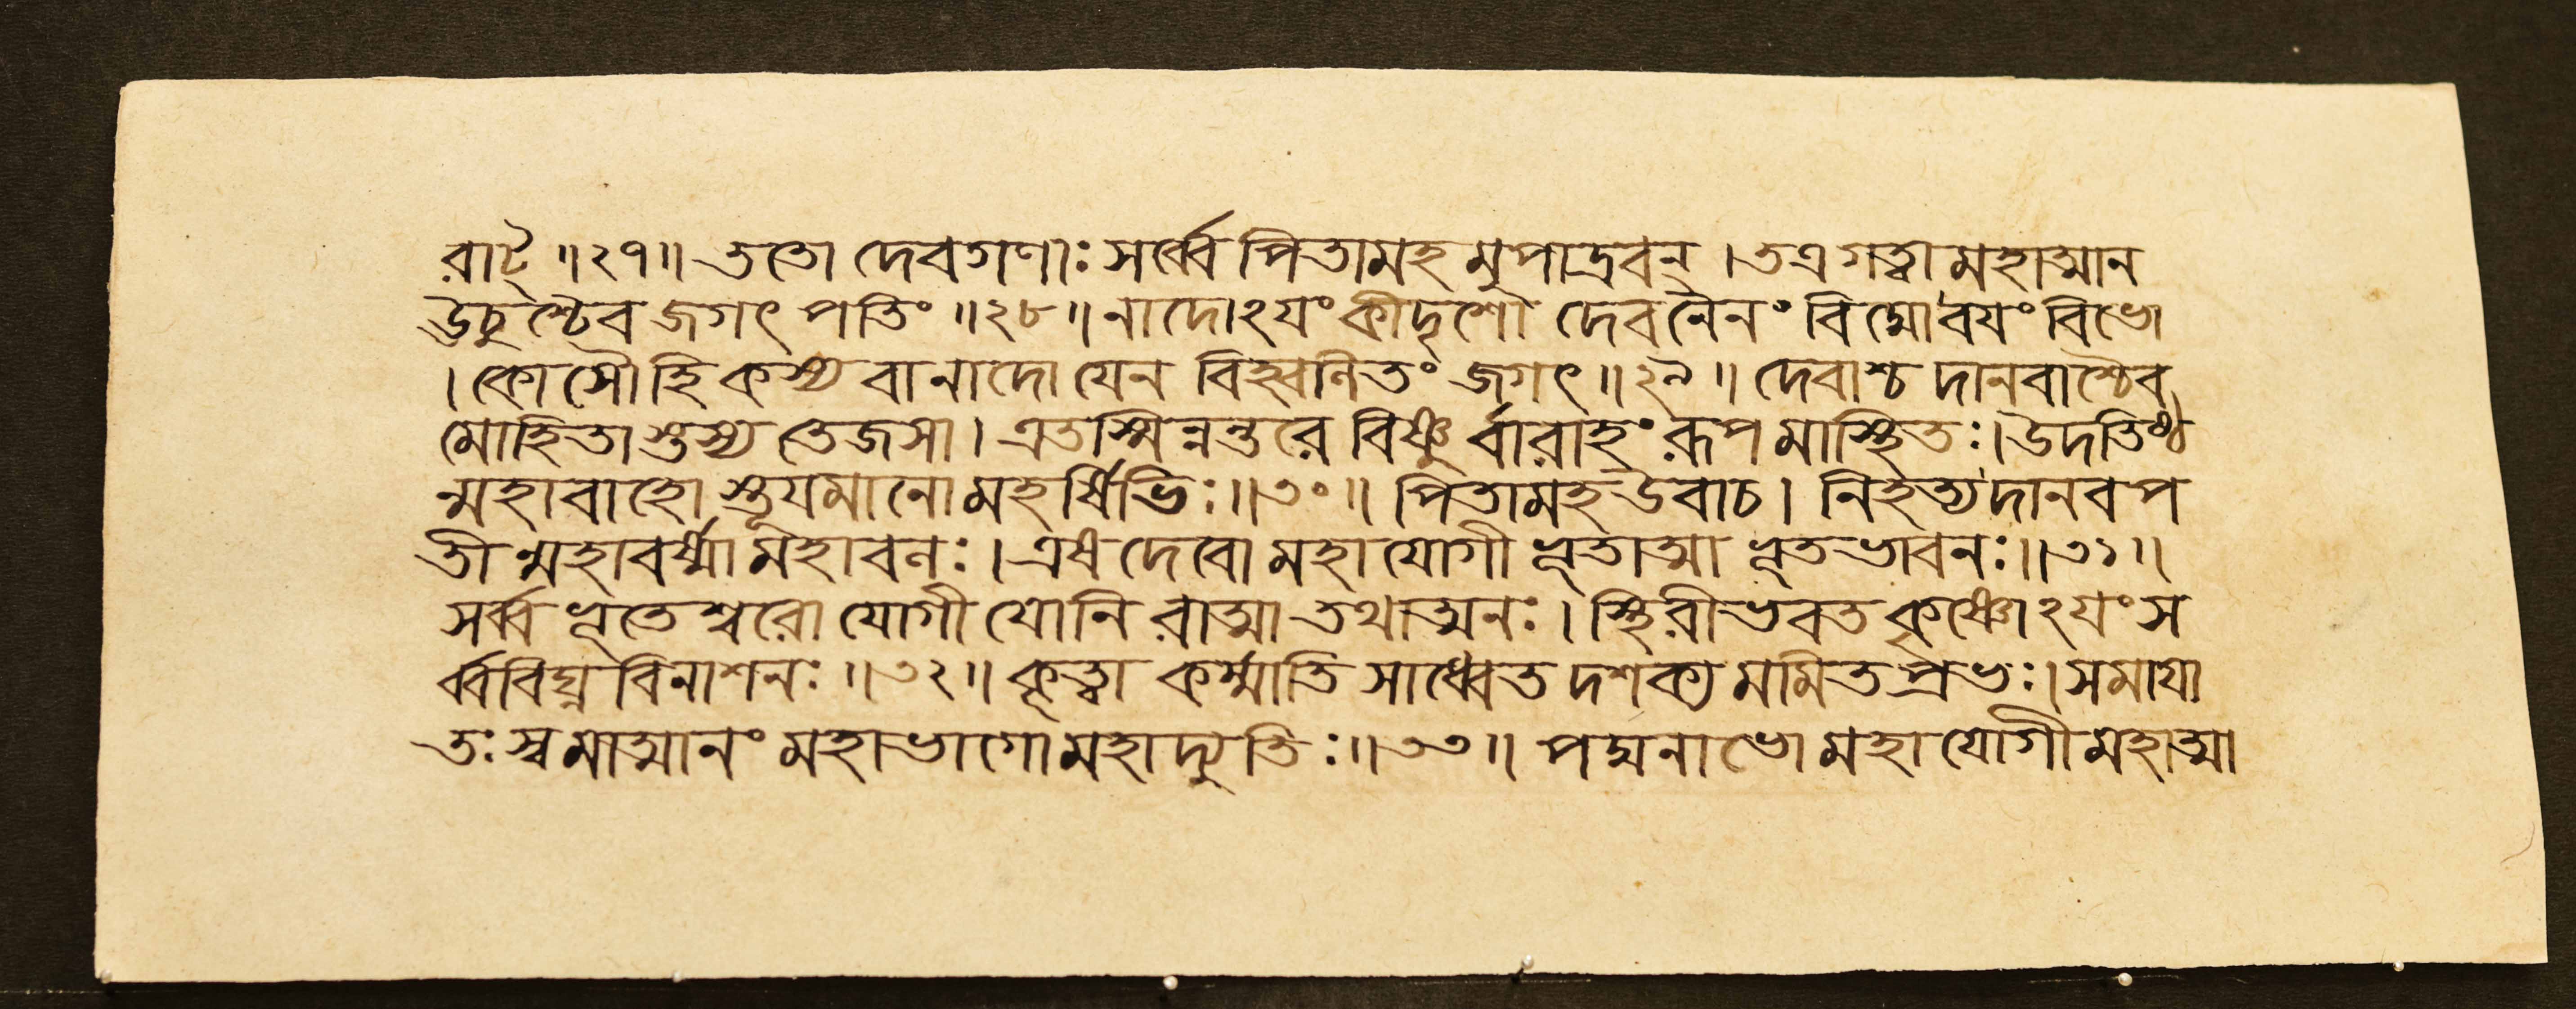 রাট্ ॥২৭॥ ততো দেবগণাঃ সর্ব্বে পিতামহমুপাদ্রবন্ । তত্র গত্বা মহাত্মান
উচুশ্চৈব জগৎ পতিং ॥২৮॥ নাদোঽয়ং কীদৃশো দেব নৈনং বিদ্মো বয়ং বিভো
। কো সৌ হি কস্য বা নাদো যেন বিহ্বলিতং জগৎ ॥২৯॥ দেবাশ্চ দানবাশ্চৈব
মোহিতাস্তস্য তেজসা । এতস্মিন্নন্তরে বিষ্ণুর্বারাহং রূপমাস্থিতঃ। উদতিষ্ঠ
ন্মহাবাহো স্তূয়মানো মহর্ষিভিঃ ॥৩০॥ পিতামহ উবাচ । নিহত্য দানবপ
তীন্মহাবর্ষ্মা মহাবলঃ । এষ দেবো মহাযোগী ভূতাত্মা ভূতভাবনঃ ॥৩১॥
সর্ব্বভূতেশ্বরো যোগী যোনিরাত্মা তথাত্মনঃ । স্থিরীভবত কৃষ্ণোঽয়ং স
র্ব্ববিঘ্ন বিনাশনঃ ॥৩২॥ কৃত্বা কর্ম্মাতি সাধ্বেতদশক্যমমিতপ্রভঃ। সমায়া
তঃ স্বমাত্মানং মহাভাগো মহাদ্যুতিঃ ॥৩৩॥ পদ্মনাভো মহাযোগী মহাত্মা